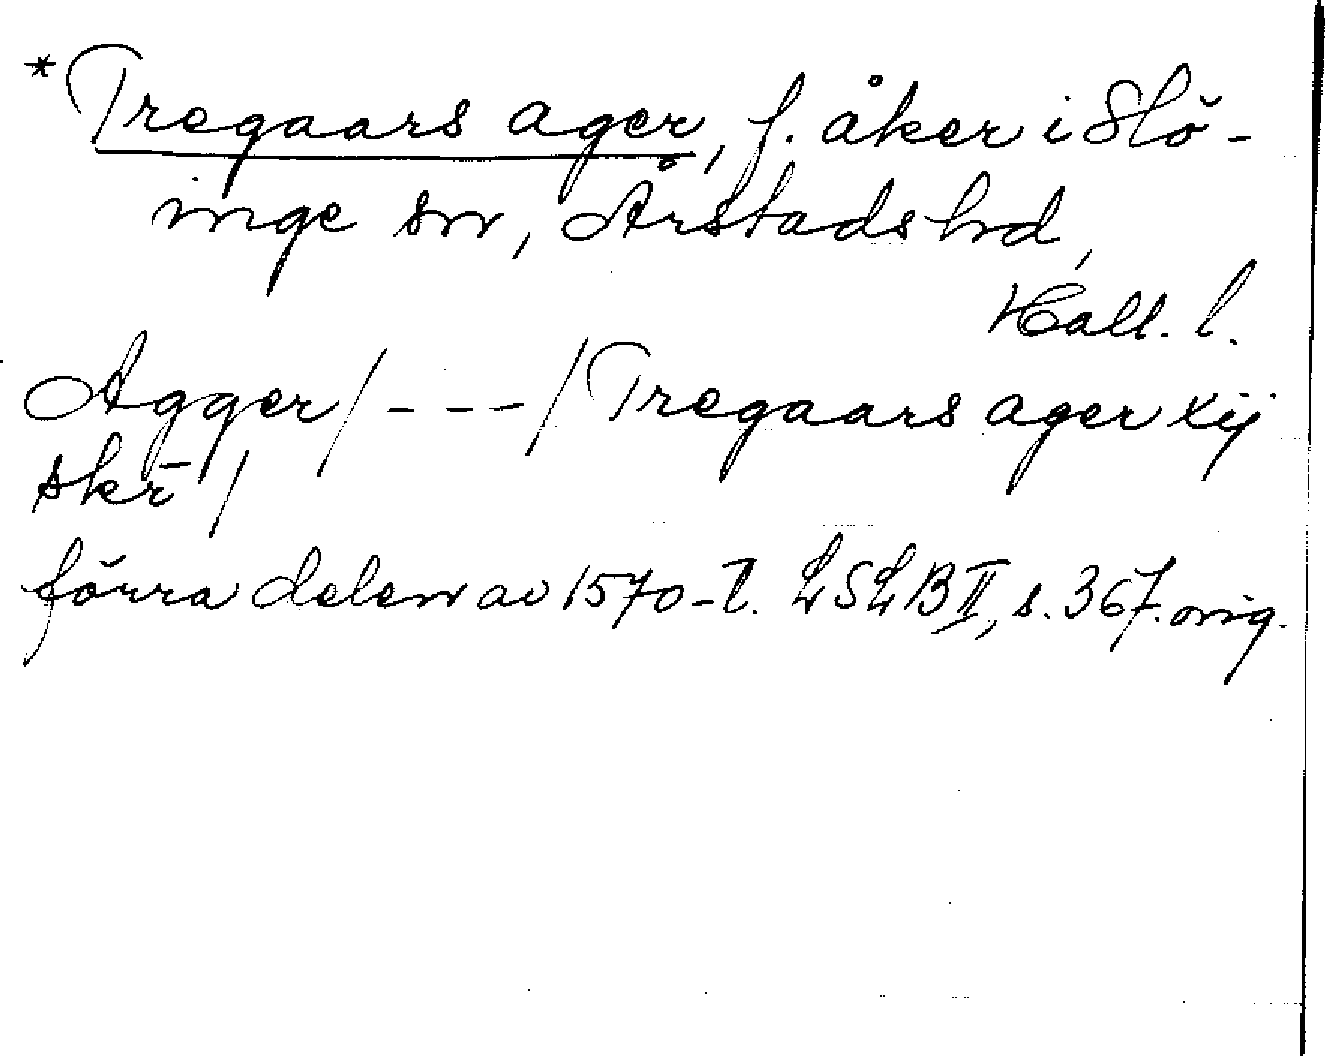 *Tregaars ager, f. åker i Slö-
inge sn, Årstads hd,
Hall. l.
Agger/---/Tregaars ager xij
skr̄/
förra delen av 1570-t. LSLB II, s. 367. orig.